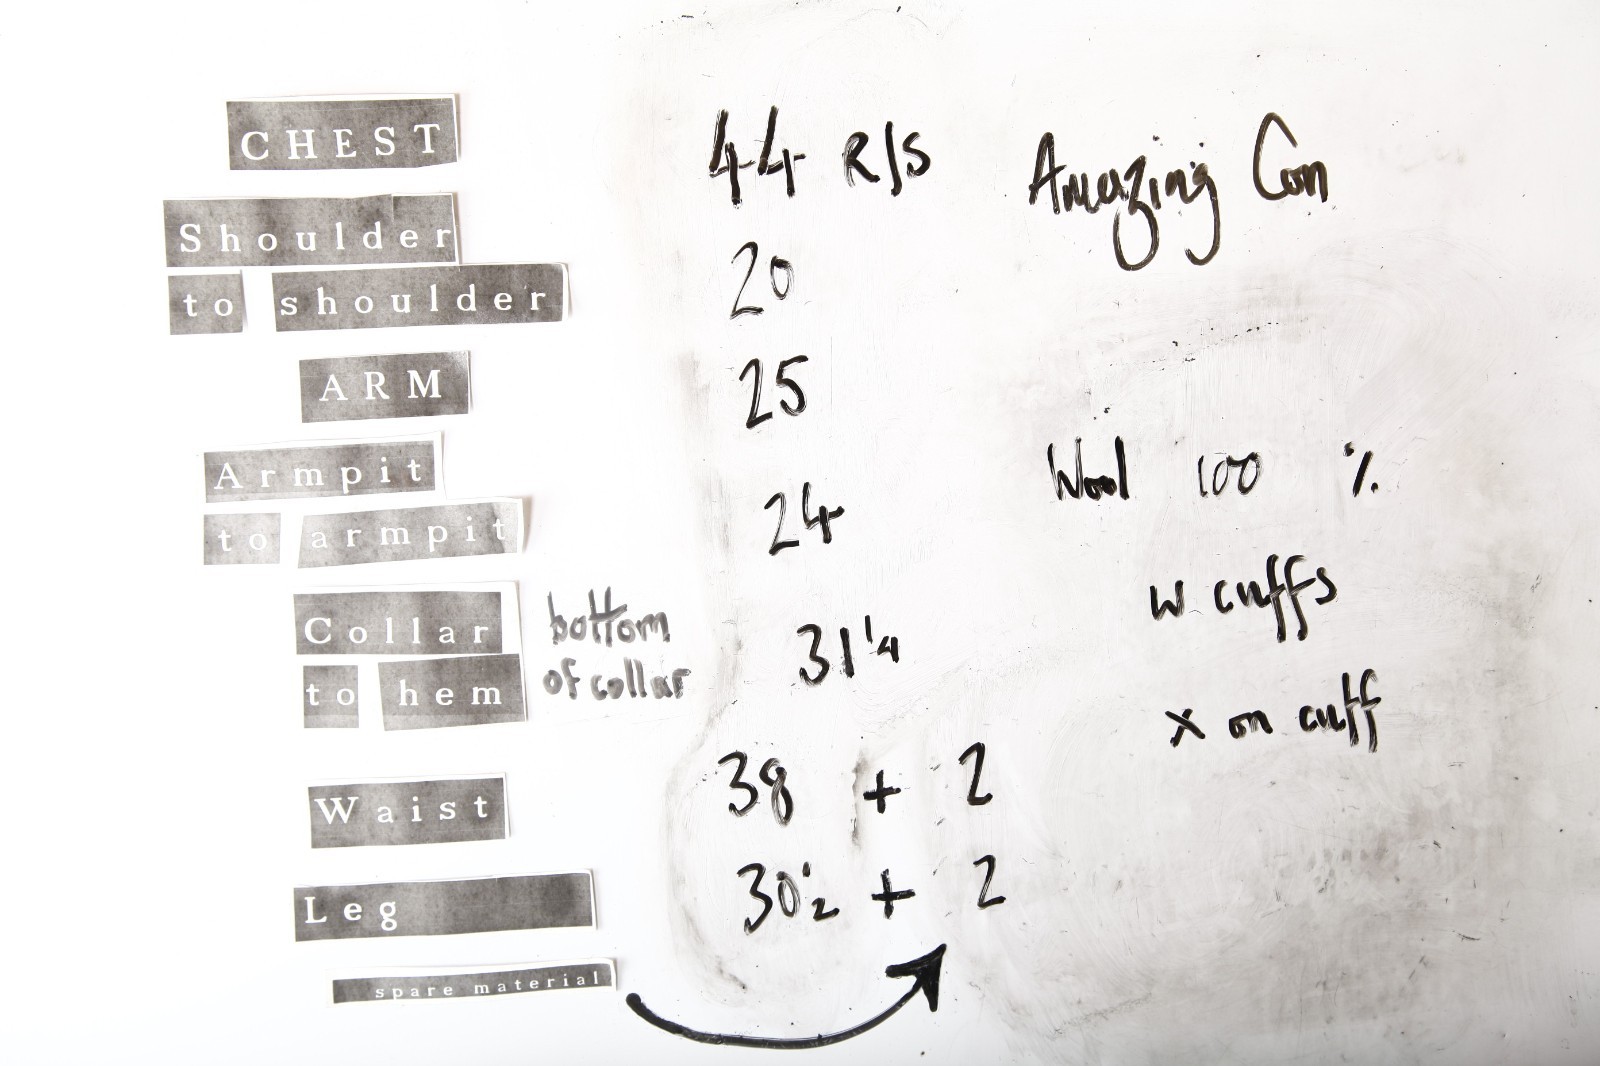 CHEST 44 R/S Amazing Con
Shoulder
to shoulder 20
ARM 25
Armpit
to armpit 24
Wool 100 %
w cuffs
Collar bottom
to hem of collar 31 1/4
x on cuff
Waist 38 + 2
Leg 30 1/2 + 2
spare material